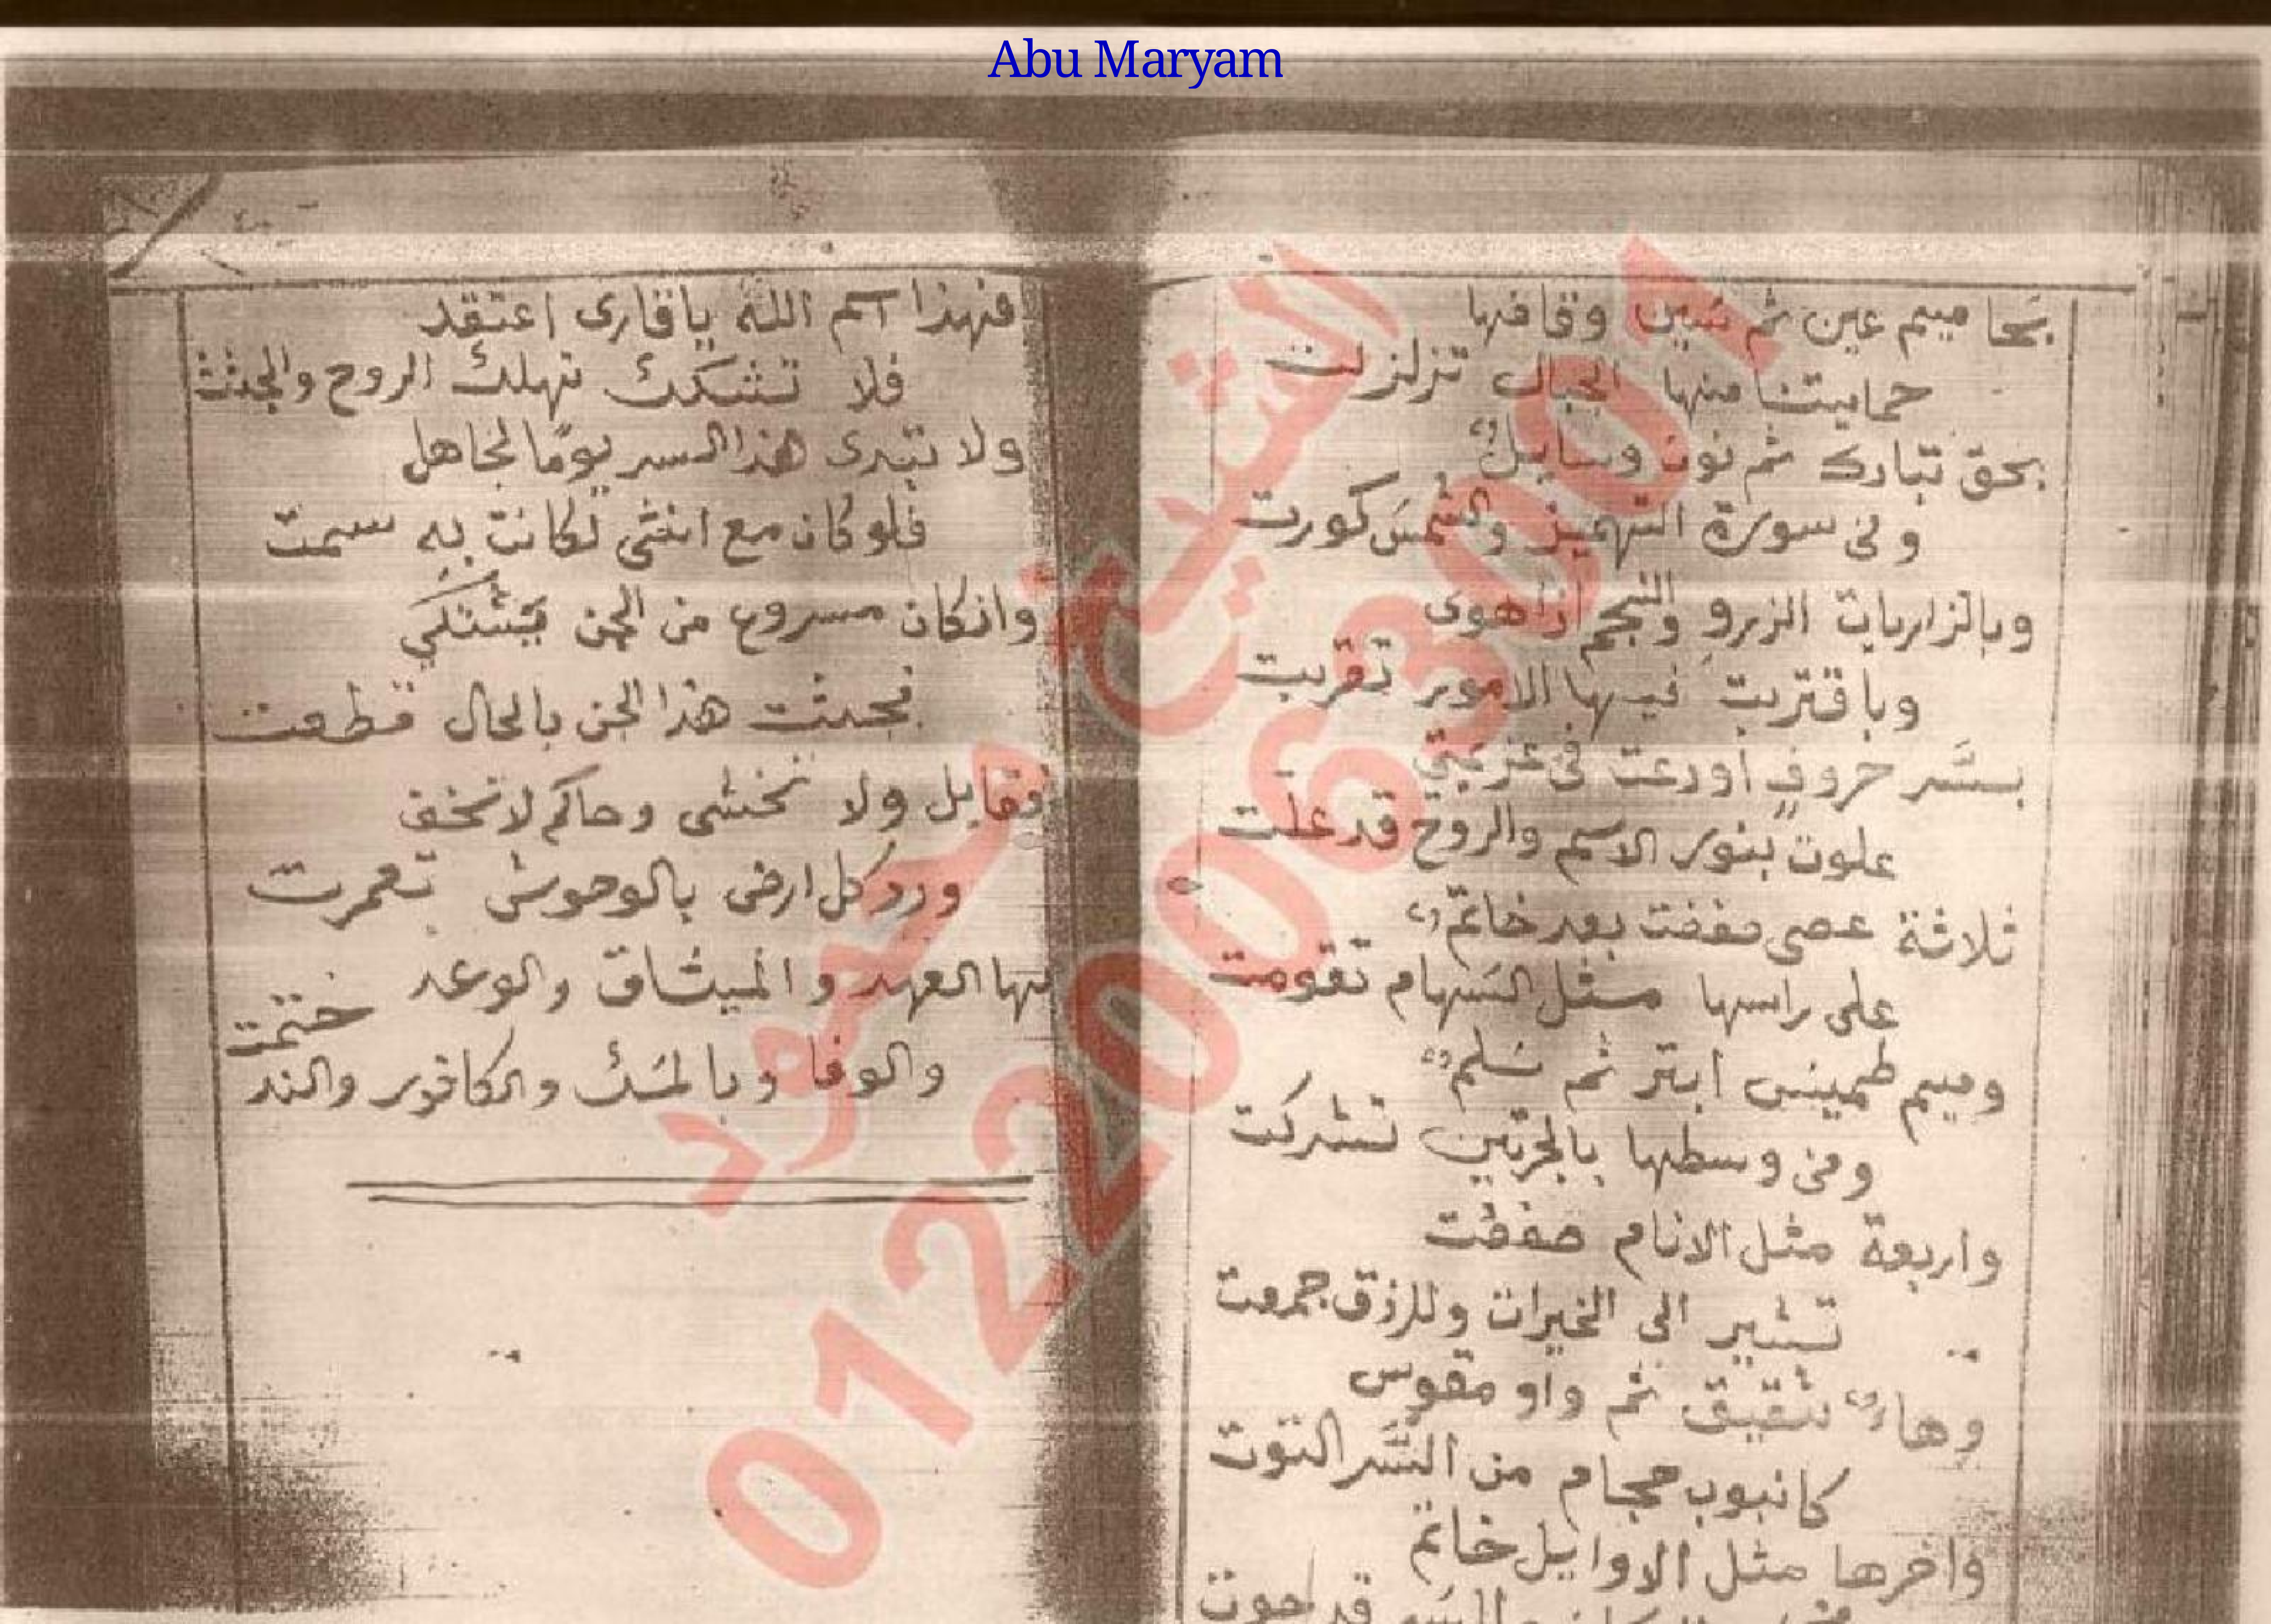 Abu Maryam
بحا ميم عين ثم سين وقافها
حمايتنا منها الجبال تزلزلت
بحق تبارك ثم نون وسايل
وفى سورة التهميز والشمس كورت
وبالزاريات الزرو والنجم اذا هوى
وباقتربت فيها الامور تقربت
بسر حروف اودعت فى عزيمتي
علوت بنور الاسم والروح قد علت
ثلاثة عصى صففت بعد خاتم
على راسها مثل السهام تقومت
وميم طميس ابتر ثم سلم
وفى وسطها بالجرتين تشركت
واربعة مثل الانام صففت
تشير الى الخيرات وللرزق جمعت
وهاء شقيق ثم واو مقوس
كانبوب حجام من السر التوت
واخرها مثل الاوايل خاتم
قد احوت
فهذا اسم الله ياقارى اعتقد
فلا تشكك تهلك الروح والجثث
ولا تبدى هذا السر يومًا لجاهل
فلو كان مع انثى لكانت به سمت
وانكان مسروع من الجن يشتكي
فجثت هذا الجن بالحال قطعت
فقابل ولا تخشى وحاكم لا تخف
ورد كل ارض بالوحوش تعمرت
بها العهد والميثاق والوعد
والوفا وبالمسك والكافور والند ختمت
الشيخ محمود
01220063001